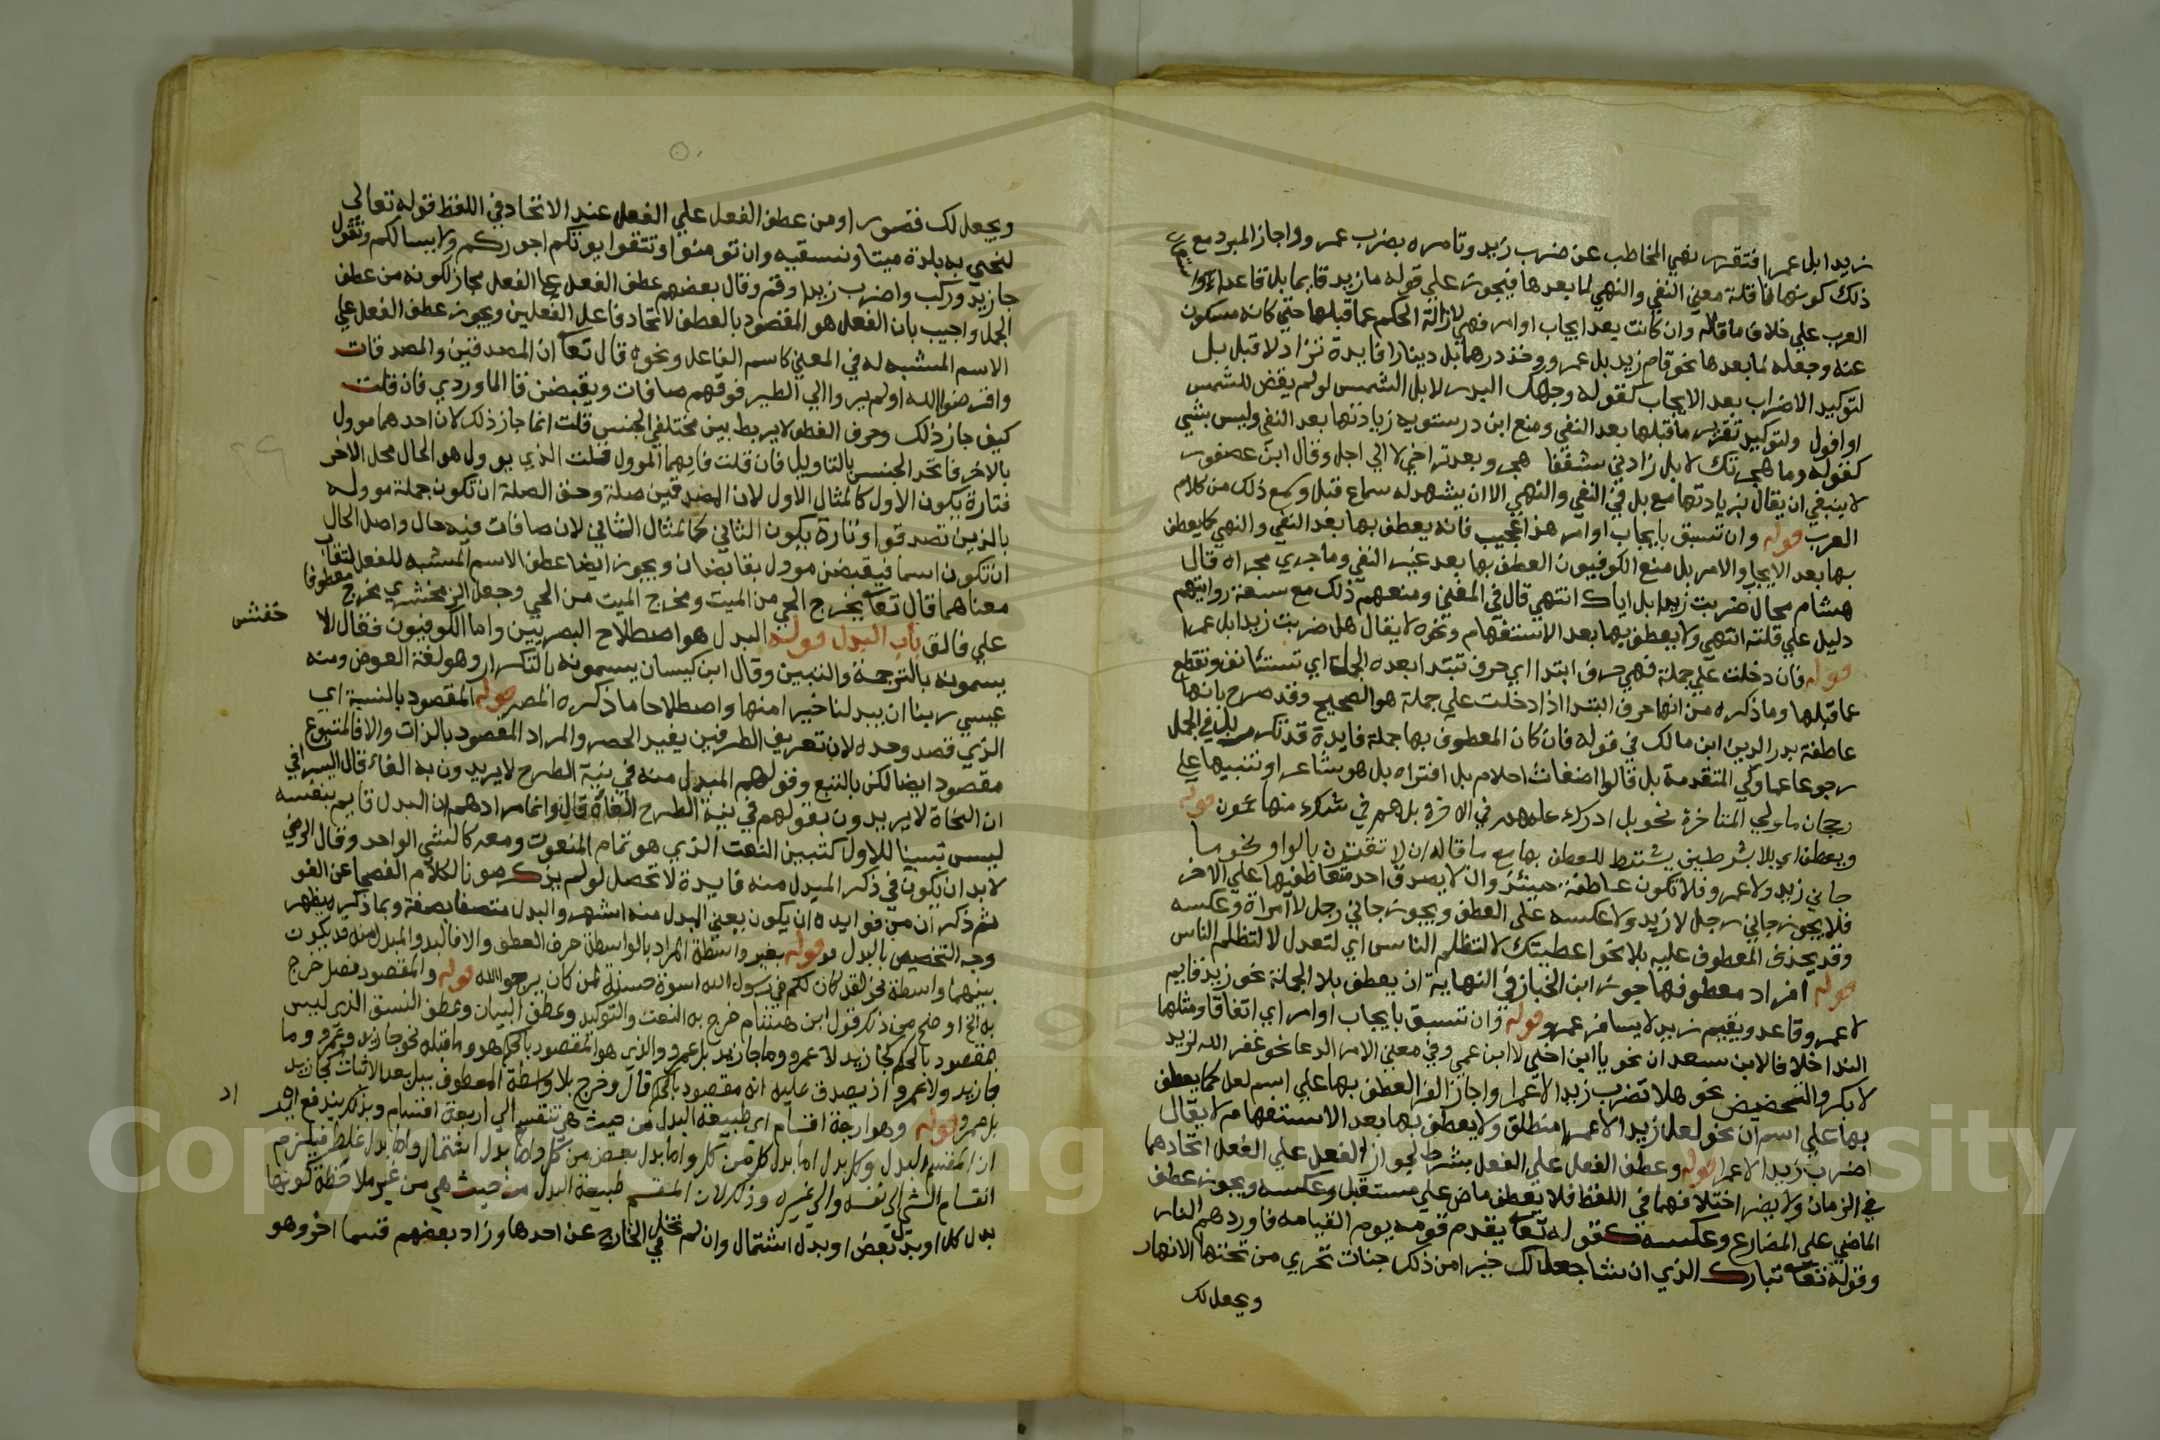 زيدا بل عمرا فتقرر نهي المخاطب عن ضرب زيد وتامره بضرب عمرو واجاز المبرد مع
ذلك كونها ناقلة معني النفي والنهي لما بعدها فيجوز علي قوله ما زيد قايما بل قاعدا
العرب علي خلاف ما قاله وان كانت بعد ايجاب او امر فهي لازالة الحكم عما قبلها حتي كانه مسكوت
عنه وجعله لما بعدها نحو قام زيد بل عمرو وخذ درهما بل دينارا فايدة تزاد لا قبل بل
لتوكيد الاضراب بعد الايجاب كقوله وجهك البدر لا بل الشمس لو لم يقض للشمس
او افول ولتوكيد تقرير ما قبلها بعد النفي ومنع ابن درستويه زيادتها بعد النفي وليس بشي
كقوله وما هجرتك لا بل زادني شغفا هجر وبعد تراخي لا الي اجل وقال ابن عصفور
لا ينبغي ان يقال بزيادتها مع بل في النفي والنهي الا ان يشهد له سماع قبل ولم يسمع ذلك من كلام
العرب قوله وان تسبق بايجاب او امر هذا عجيب فانه يعطف بها بعد النفي والنهي كما يعطف
بها بعد الايجاب والامر بل منع الكوفيون العطف بها بعد غير النفي وما جري مجراه قال
هشام محال ضربت زيدا بل اياك انتهي قال في المغني ومنعهم ذلك مع سعة روايتهم
دليل علي قلته انتهي ولا يعطف بها بعد الاستفهام ونحوه لا يقال هل ضربت زيدا بل عمرا
قوله فان دخلت علي جملة فهي حرف ابتدا اي حرف تبتدا بعده الجملة اي تستانف وتقطع
عما قبلها وما ذكره من انها حرف ابتدا اذا دخلت علي جملة هو الصحيح وقد صرح بانها
عاطفة بدر الدين ابن مالك في قوله فان كان المعطوف بها جملة فايدة قد تكرر بل في الجمل
رجوعا عما ولي المتقدمة بل قالوا اضغاث احلام بل افتراه بل هو شاعر او تنبيها علي
رجحان ما ولي المتاخرة نحو بل ادرك علمهم في الاخرة بل هم في شك منها بل هم منها عمون قوله
ويعطف اي بلا بشرطين يشترط للعطف بها مع ما قاله ان لا تقترن بالواو نحو ما
جاني زيد ولا عمرو فلا تكون عاطفة حينئذ وان لا يصدق احد متعاطفيها علي الاخر
فلا يجوز جاني رجل لا زيد ولا عكسه علي العطف ويجوز جاني رجل لا امراة وعكسه
وقد يحذف المعطوف عليه بلا نحو اعطيتك لا لتظلم الناس اي لتعدل لا لتظلم الناس
قوله افراد معطوفها جوز ابن الخباز في النهاية ان يعطف بلا الجملة نحو زيد قايم
لا عمرو قاعد ويقيم زيد لا يسافر عمرو قوله وان تسبق بايجاب او امر اي اتفاقا ومثلها
الندا خلافا لابن سعدان نحو يا ابن اخي لا ابن عمي وفي معني الامر الدعا نحو غفر الله لزيد
لا بكر والتحضيض نحو هلا تضرب زيدا لا عمرا واجاز الفرا العطف بها علي اسم لعل كما يعطف
بها علي اسم ان نحو لعل زيدا لا عمرا منطلق ولا يعطف بها بعد الاستفهام لا يقال
اضرب زيدا لا عمرا قوله وعطف الفعل علي الفعل بشرط لجواز الفعل علي الفعل اتحادهما
في الزمان ولا يضر اختلافهما في اللفظ فلا يعطف ماض علي مستقبل وعكسه ويجوز عطف
الماضي علي المضارع وعكسه كقوله تعا يقدم قومه يوم القيامه فاوردهم النار
وقوله تعا تبارك الذي ان شا جعل لك خيرا من ذلك جنات تجري من تحتها الانهار
ويجعل لك
ويجعل لك قصورا ومن عطف الفعل علي الفعل عند الاتحاد في اللفظ قوله تعالي
لنحيي به بلدة ميتا ونسقيه وان تومنوا وتتقوا يوتكم اجوركم ولا يسالكم وتقول
جا زيد وركب واضرب زيدا وقم وقال بعضهم عطف الفعل علي الفعل مجاز لكونه من عطف
الجمل واجيب بان الفعل هو المقصود بالعطف لاتحاد فاعل الفعلين ويجوز عطف الفعل علي
الاسم المشبه له في المعني كاسم الفاعل ونحوه قال تعا ان المصدقين والمصدقات
واقرضوا الله اولم يروا الي الطير فوقهم صافات ويقبضن قال الماوردي فان قلت
كيف جاز ذلك وحرف العطف لا يربط بين مختلفي الجنس قلت انما جاز ذلك لان احدهما موول
بالاخر فاتحد الجنس بالتاويل فان قلت فايهما الموول قلت الذي يوول هو الحال محل الاخر
فتارة يكون الاول كالمثال الاول لان المصدقين صلة وحق الصلة ان تكون جملة موولة
بالذين تصدقوا وتارة يكون الثاني كالمثال الثاني لان صافات فيه حال واصل الحال
ان تكون اسما فيقبضن موول بقابضان ويجوز ايضا عطف الاسم المشبه للفعل لتقارب
معناهما قال تعا يخرج الحي من الميت ومخرج الميت من الحي وجعل الزمخشري مخرج معطوفا
علي فالق باب البدل قوله البدل هو اصطلاح البصريين واما الكوفيون فقال الا
خفش
يسمونه بالترجمة والتبيين وقال ابن كيسان يسمونه بالتكرار وهو لغة العوض ومنه
عسي ربنا ان يبدلنا خيرا منها واصطلاحا ما ذكره المصر قوله المقصود بالنسبة اي
الذي قصد وحده لان تعريف الطرفين يفيد الحصر والمراد المقصود بالذات والا فالمتبوع
مقصود ايضا لكن بالتبع وقولهم المبدل منه في نية الطرح لا يريدون به الغاء قال السيرافي
ان النحاة لا يريدون بقولهم في نية الطرح الغاه قال وانما مرادهم ان البدل قايم بنفسه
ليس تبيينا للاول كتبيين النعت الذي هو تمام المنعوت ومعه كالشي الواحد وقال الرضي
لا بد ان تكون في ذكر المبدل منه فايدة لا تحصل لو لم يذكر صونا لكلام الفصحا عن اللغو
ثم ذكر ان من فوايده ان يكون يعني المبدل منه اشهر والبدل متصفا بصفة وبما ذكر يظهر
وجه التخصيص بالبدل قوله بغير واسطة المراد بالواسطة حرف العطف والا فالبدل والمبدل منه قد يكون
بينهما واسطة نحو لقد كان لكم في رسول الله اسوة حسنة لمن كان يرجو الله قوله والمقصود فصل خرج
به الخ اوضح من ذلك قول ابن هشام خرج به النعت والتوكيد وعطف البيان وعطف النسق الذي ليس
مقصودا بالحكم كجا زيد لا عمرو وما جا زيد بل عمرو والذي هو المقصود بالحكم هو وما قبله نحو جا زيد وعمرو وما
جا زيد ولا عمرو اذ يصدق عليه انه مقصود بالحكم قال وخرج بلا واسطة المعطوف ببل بعد الاثبات كجا زيد
بل عمرو قوله وهو اربعة اقسام اي طبيعة البدل من حيث هي تنقسم الي اربعة اقسام وبذلك يندفع اير
اد
ان المقسم البدل وكل بدل اما بدل كل من كل واما بدل بعض من كل واما بدل اشتمال واما بدل غلط فيلزم
انقسام الشي الي نفسه والي غيره وذلك لان المقسم طبيعة البدل من حيث هي من غير ملاحظة كونها
بدل كل او بدل بعض او بدل اشتمال وان لم تخل في الخارج عن احدها وزاد بعضهم قسما اخر وهو
Copyright © King Saud University